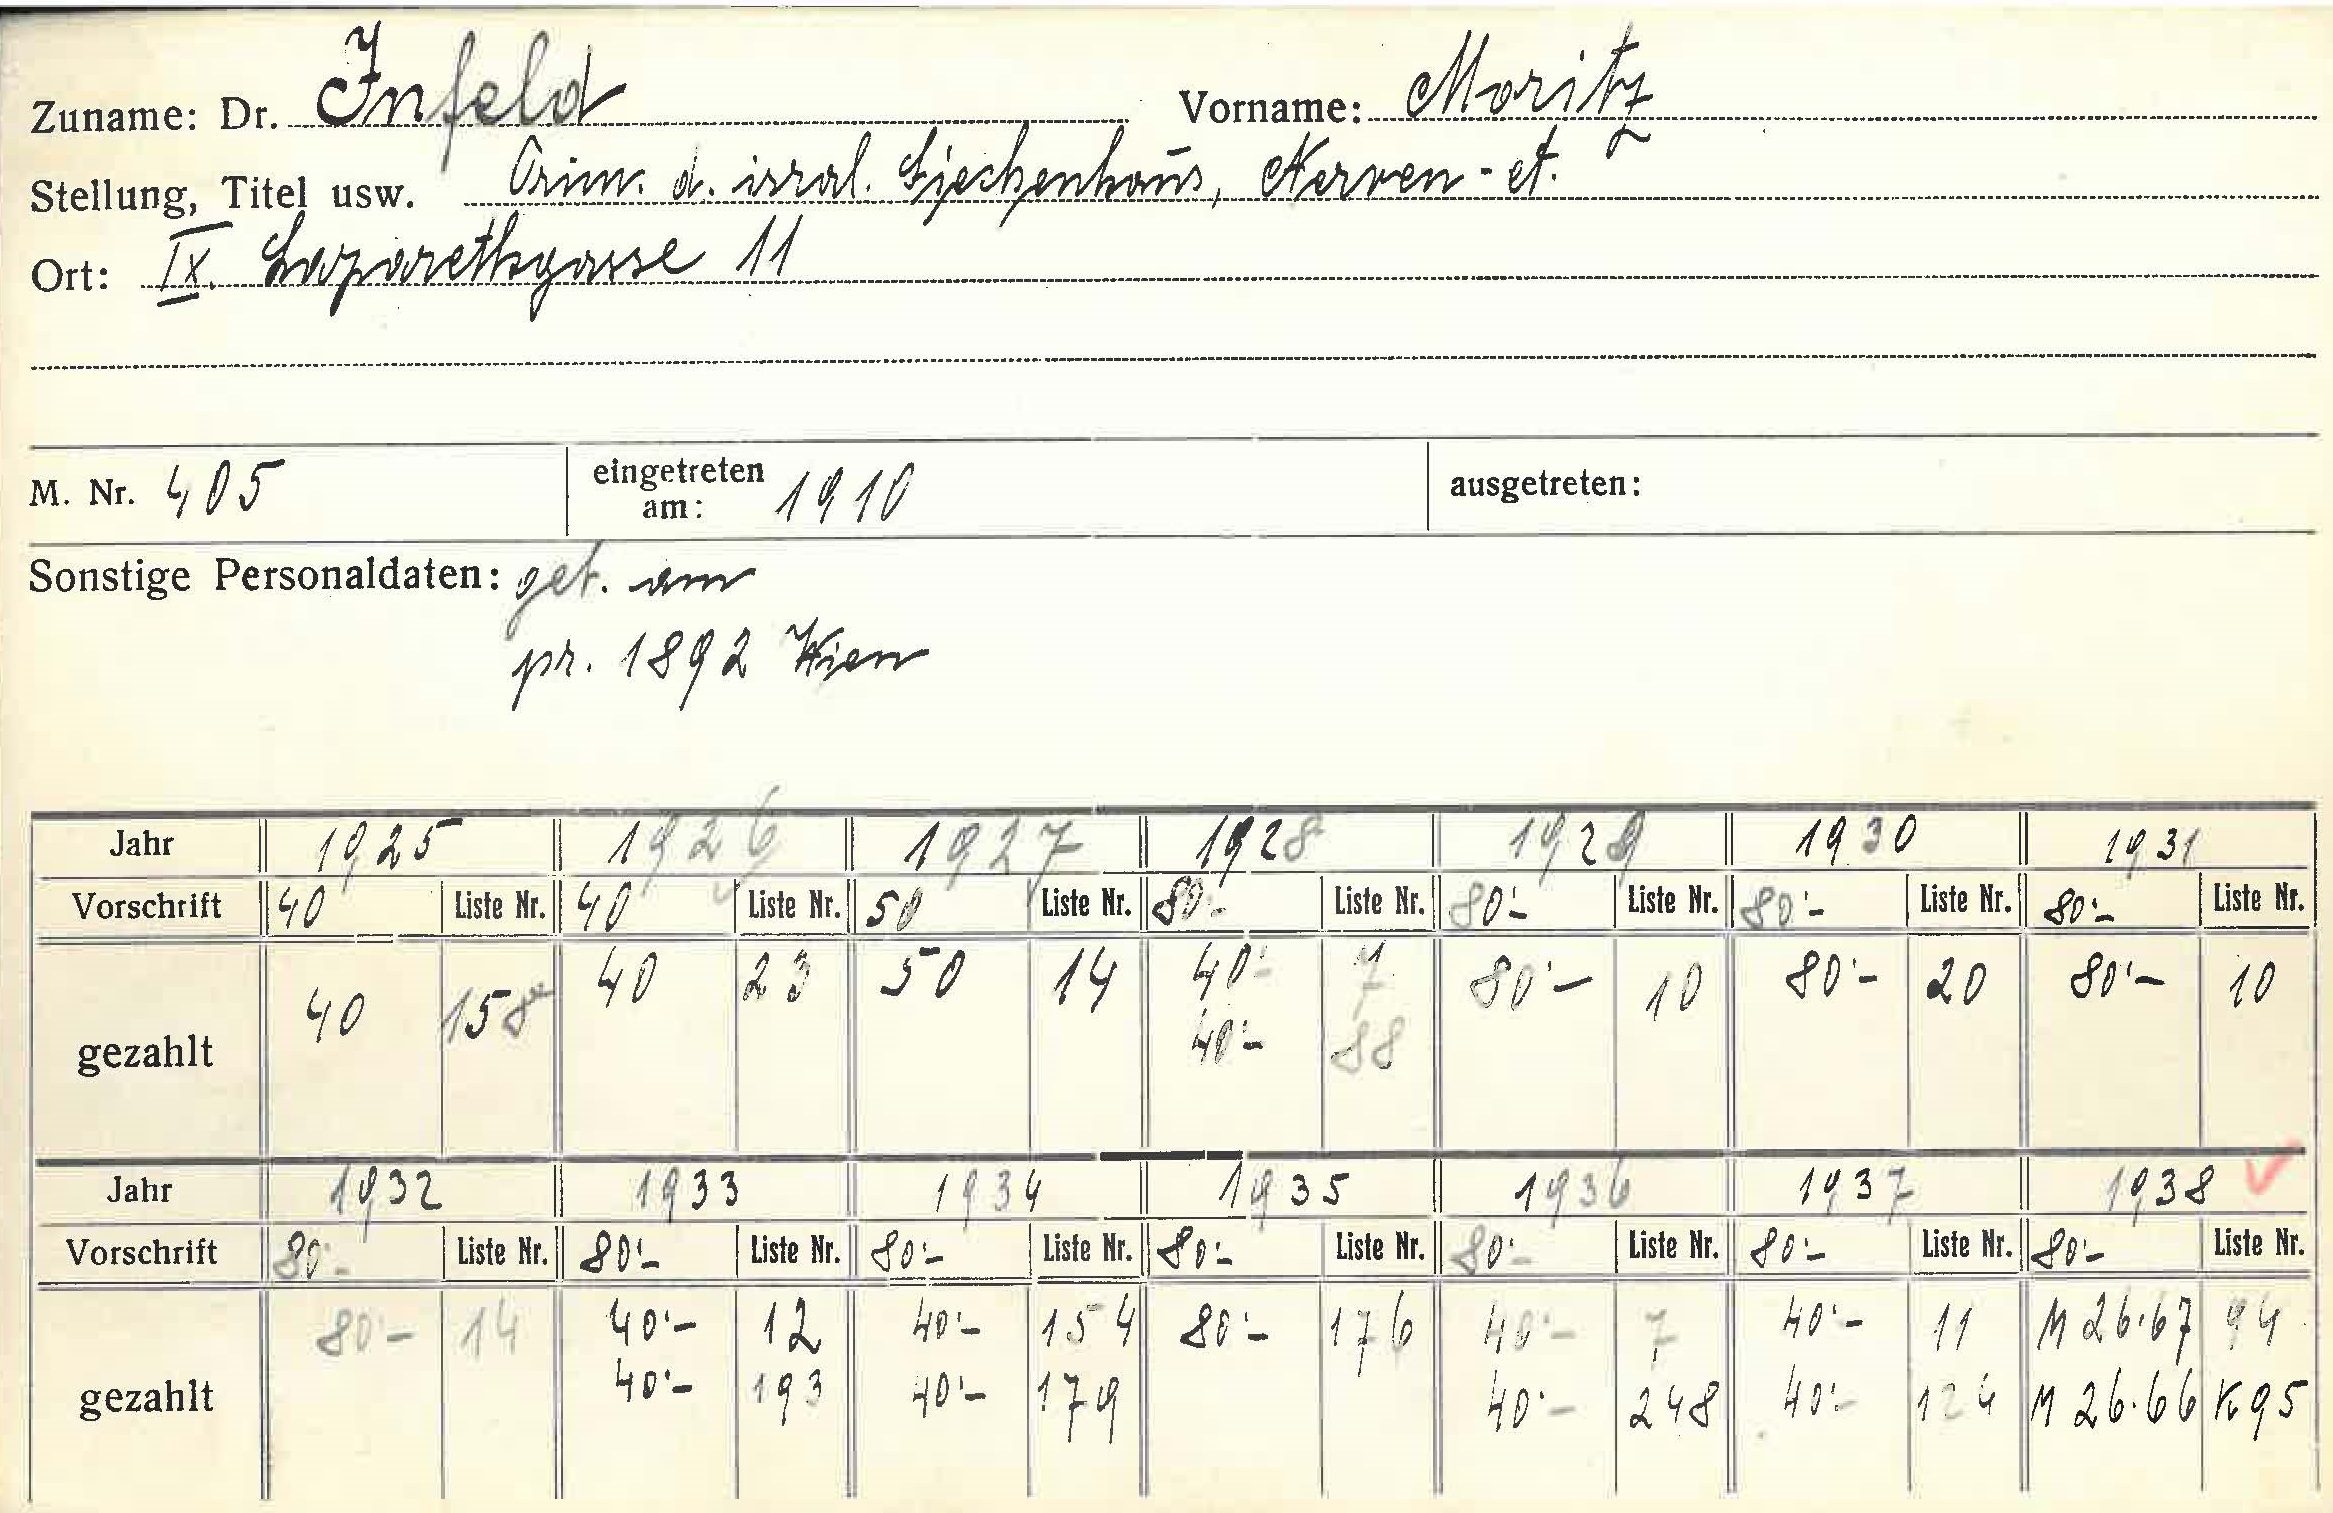 Zuname: Dr. Infeld Vorname: Moritz
Stellung, Titel usw. Prim. d. isral. Siechenhaus, Nerven-A.
Ort: IX. Lazarethgasse 11
M. Nr. 405 eingetreten am: 1910 ausgetreten:
Sonstige Personaldaten: geb. am
pr. 1892 Wien
Jahr 1925 1926 1927 1928 1929 1930 1931
Vorschrift 40 Liste Nr. 40 Liste Nr. 50 Liste Nr. 80'- Liste Nr. 80'- Liste Nr. 80'- Liste Nr. 80'- Liste Nr.
gezahlt 40 158 40 23 50 14 40'- 7 80'- 10 80'- 20 80'- 10
40'- 88
Jahr 1932 1933 1934 1935 1936 1937 1938 ✓
Vorschrift 80'- Liste Nr. 80'- Liste Nr. 80'- Liste Nr. 80'- Liste Nr. 80'- Liste Nr. 80'- Liste Nr. 80'- Liste Nr.
gezahlt 80'- 14 40'- 12 40'- 154 80'- 176 40'- 7 40'- 11 M 26.67 94
40'- 193 40'- 179 40'- 248 40'- 124 M 26.66 K95